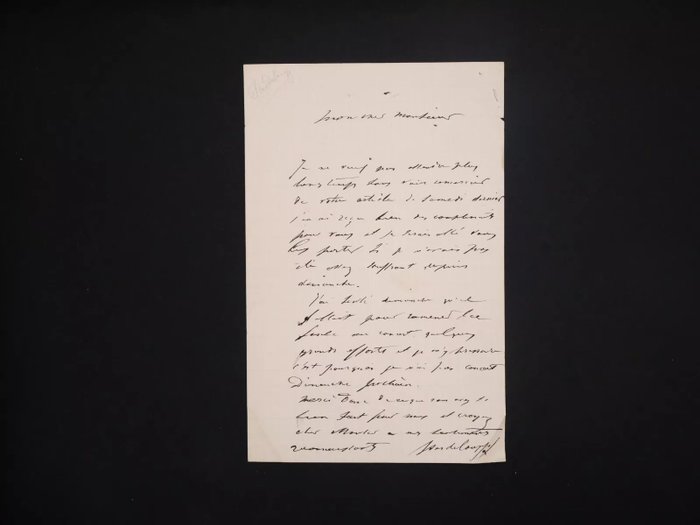 Mon cher Monsieur
Je ne veux pas attendre plus
longtemps sans vous remercier
de votre article de Samedi dernier
j'en ai reçu bien des compliments
pour vous et je serais allé vous
les porter si je n'avais pas
été assez souffrant depuis
dimanche.
J'ai senti dimanche qu'il
fallait pour ramener la
foule au concert quelques
grands efforts et je m'y prépare
c'est pourquoi je n'ai pas concert
Dimanche prochain.
Merci donc de ce que vous avez si
bien fait pour nous et croyez
cher Monsieur à mes sentiments
reconnaissants Pasdeloup